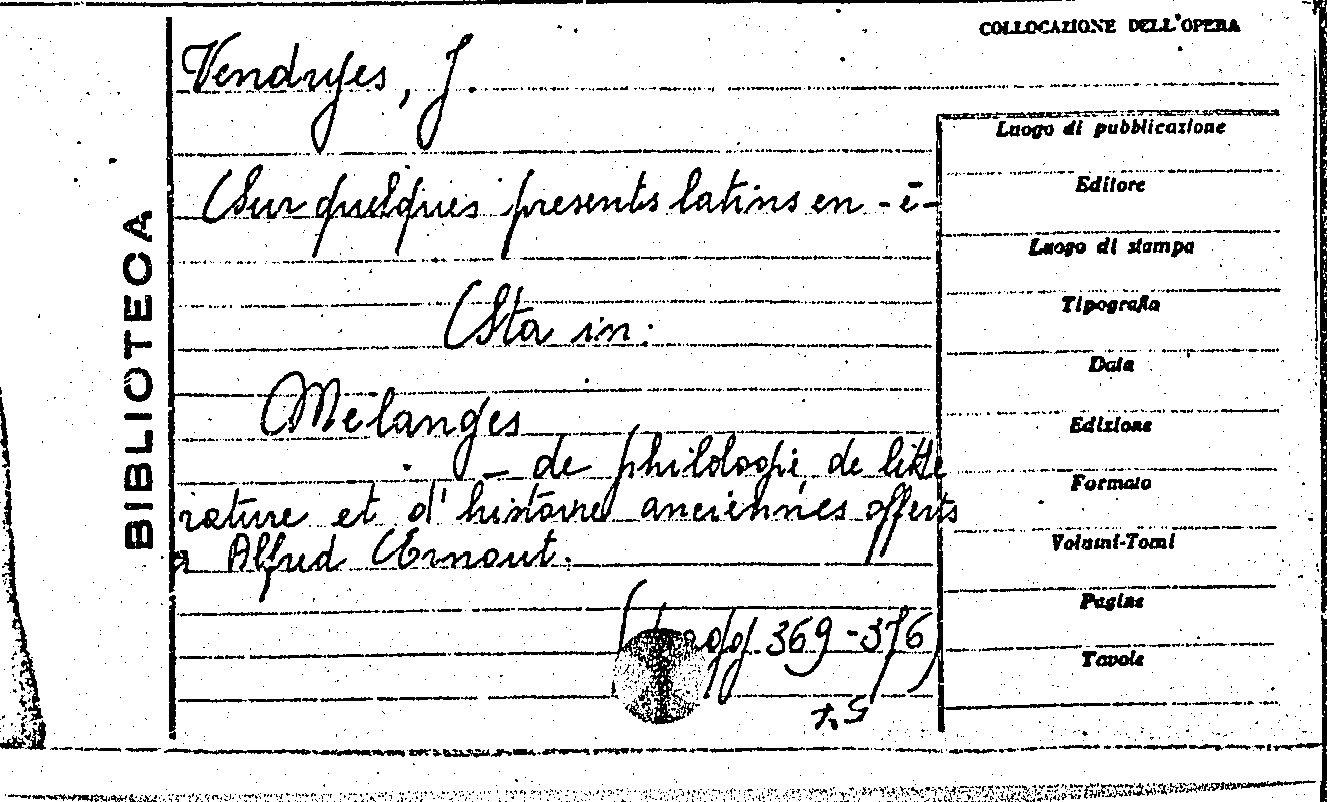 COLLOCAZIONE DELL'OPERA
Vendryes, J.
Sur quelques presents latins en -ē-
(Sta in:
Melanges
- de philologie, de litte
rature et d'histoire anciennes offerts
a Alfred Ernout.
(pagg. 369-376)
BIBLIOTECA
Luogo di pubblicazione
Editore
Luogo di stampa
Tipografia
Data
Edizione
Formato
Volumi-Tomi
Pagine
Tavole